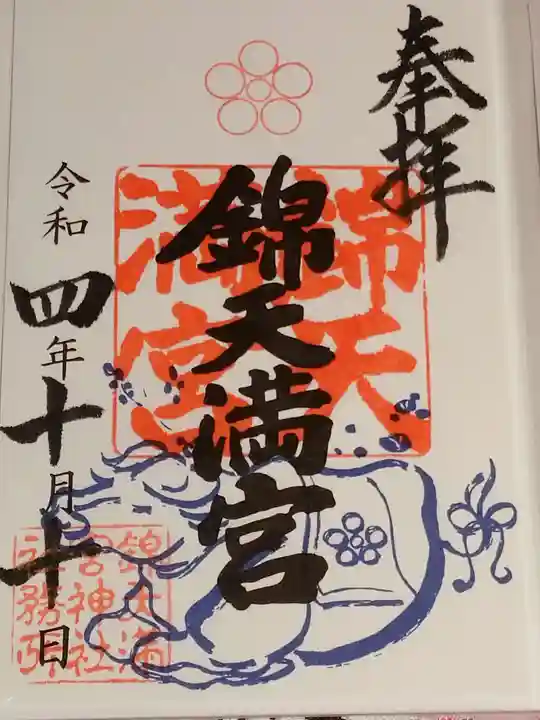 奉拝
錦天満宮
錦天満宮
令和四年十月十日
錦天満
宮神社
社務所